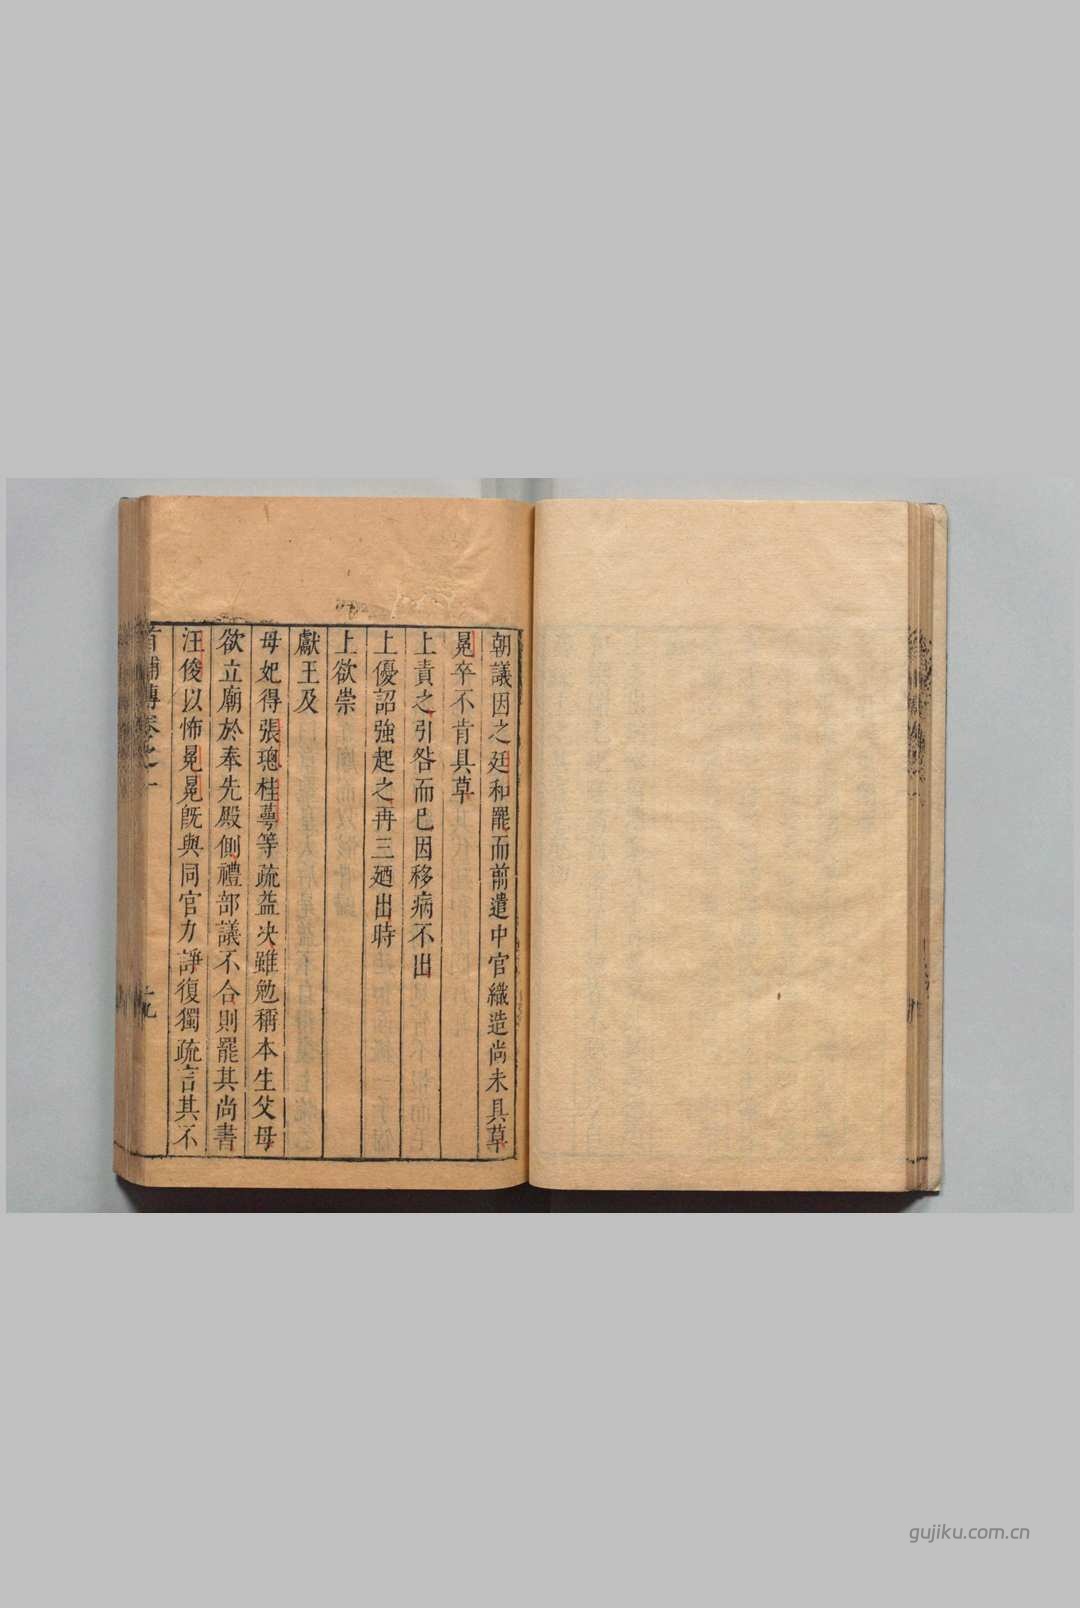 朝議因之廷和罷而前遣中官織造尚未具草
冕卒不肯具草
上責之引咎而已因移病不出
上優詔強起之再三廼出時
上欲崇
獻王及
母妃得張璁桂萼等疏益决雖勉稱本生父母
欲立廟於奉先殿側禮部議不合則罷其尚書
汪俊以怖冕冕旣與同官力諍復獨疏言其不
首輔傳卷之一
gujiku.com.cn